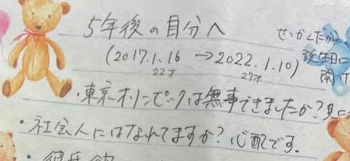 5年後の自分へ
せっかくだから
誕生日に
開け
(2017.1.16 → 2022.1.10)
22才
27才
・東京オリンピックは無事できましたか?見に
・社会人にはなれてますか?心配です。